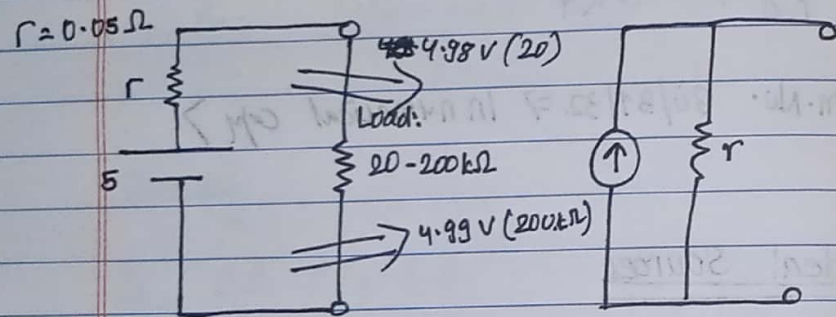 r = 0.05 Ω
4.98 V (20)
r
Load:
20 - 200 kΩ
r
5
4.99 V (200 kΩ)